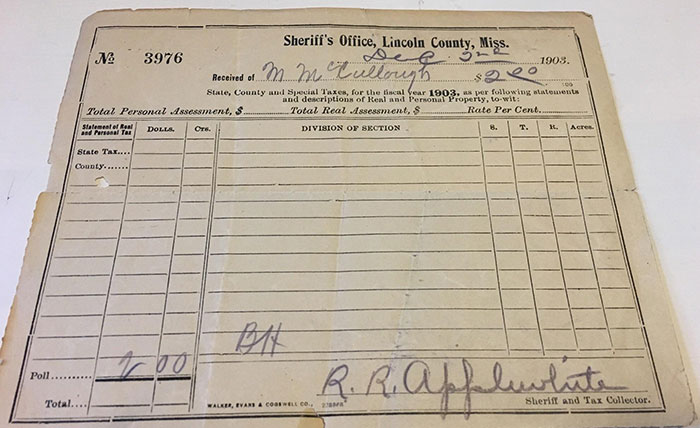 Sheriff's Office, Lincoln County, Miss.
No 3976 Dec 2nd 1903.
Received of M McCullough $2.00
State, County and Special Taxes, for the fiscal year 1903, as per following statements
and descriptions of Real and Personal Property, to-wit:
Total Personal Assessment, $ Total Real Assessment, $ Rate Per Cent.
Statement of Real and Personal Tax DOLLS. CTS. DIVISION OF SECTION S. T. R. Acres.
State Tax....
County.......
BH
Poll 2 00
R. R. Applewhite
Total.... WALKER, EVANS & COGSWELL CO., Sheriff and Tax Collector.